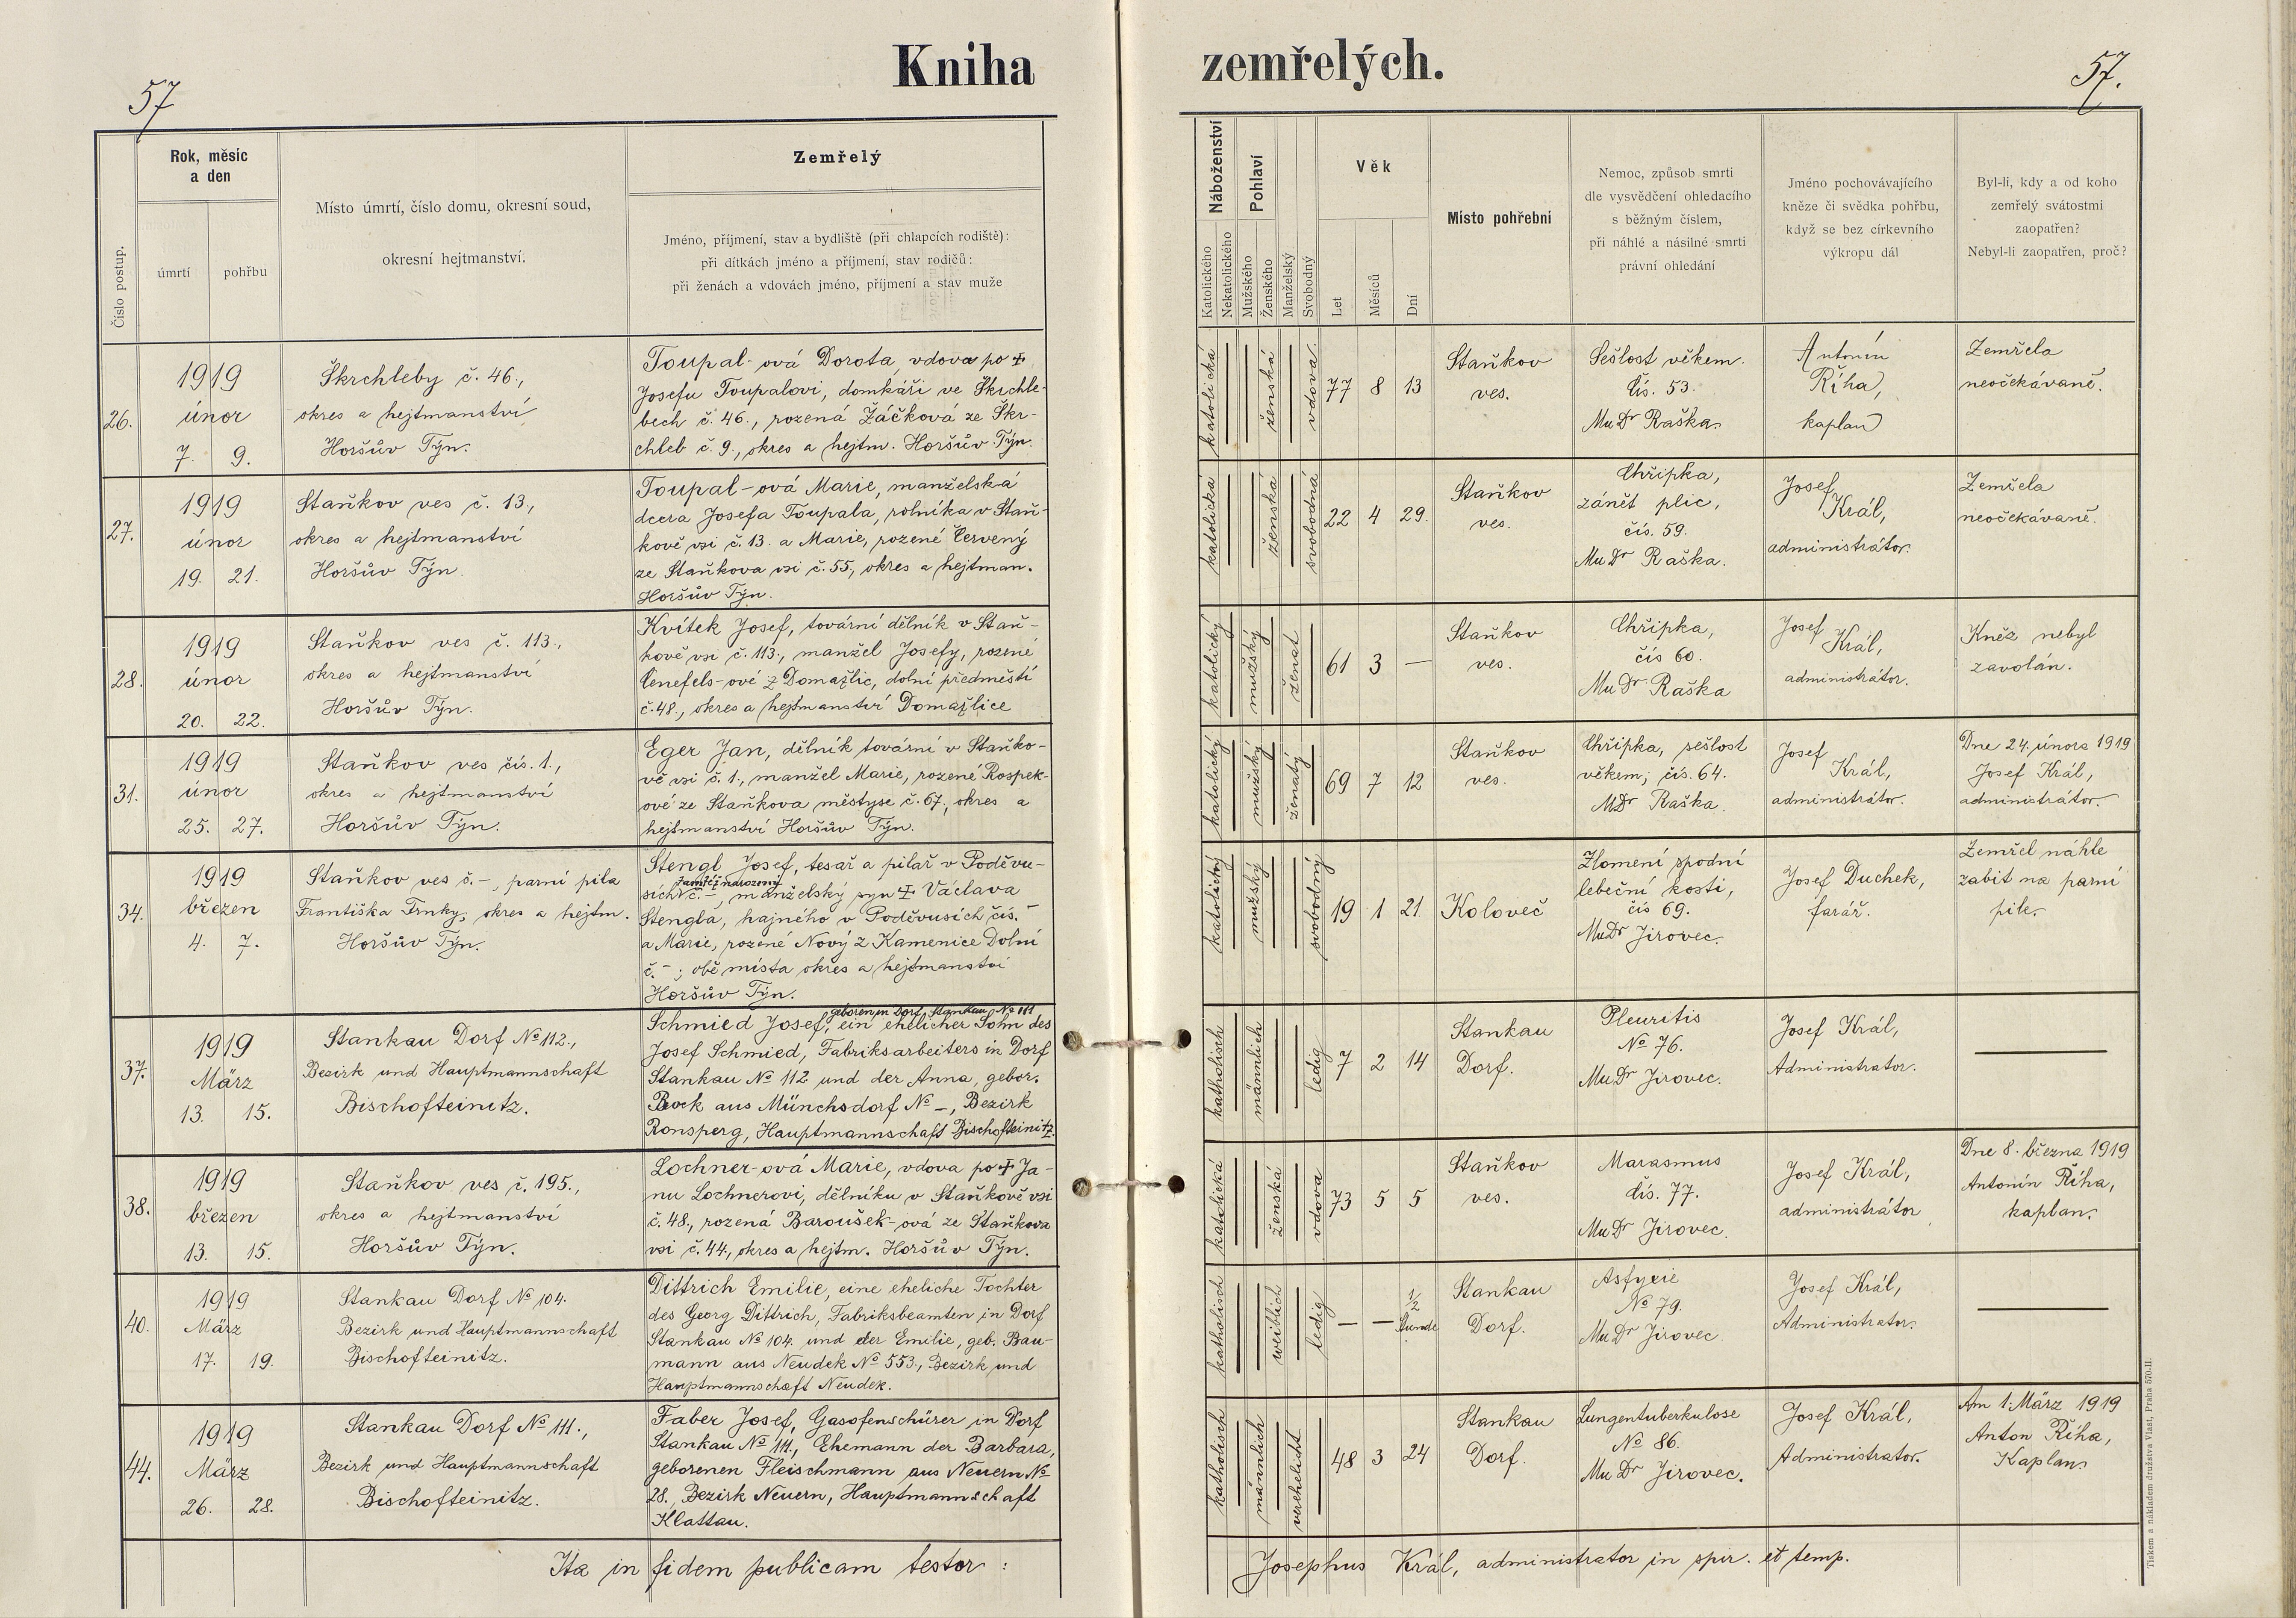 57
Kniha zemřelých.
57.
Číslo postup.
Rok, měsíc
a den
úmrtí
pohřbu
Místo úmrtí, číslo domu, okresní soud,
okresní hejtmanství.
Zemřelý
Jméno, příjmení, stav a bydliště (při chlapcích rodiště):
při dítkách jméno a příjmení, stav rodičů:
při ženách a vdovách jméno, příjmení a stav muže
Náboženství
Katolického
Nekatolického
Pohlaví
Mužského
Ženského
Manželský
Svobodný
Věk
Let
Měsíců
Dní
Místo pohřební
Nemoc, způsob smrti
dle vysvědčení ohledacího
s běžným číslem,
při náhlé a násilné smrti
právní ohledání
Jméno pochovávajícího
kněze či svědka pohřbu,
když se bez církevního
výkropu dál
Byl-li, kdy a od koho
zemřelý svátostmi
zaopatřen?
Nebyl-li zaopatřen, proč?
26.
1919
únor
7. 9.
Škrchleby č. 46.,
okres a hejtmanství
Horšův Týn.
Toupal-ová Dorota, vdova po ‡
Josefu Toupalovi, domkáři ve Škrchle-
bech č. 46., rozená Žáčková ze Škr-
chleb č. 9., okres a hejtm. Horšův Týn.
katolická
ženská
vdova.
77 8 13
Staňkov
ves.
Sešlost věkem.
čís. 53.
MuDr Raška.
Antonín
Říha,
kaplan
Zemřela
neočekávaně.
27.
1919
únor
19. 21.
Staňkov ves č. 13.,
okres a hejtmanství
Horšův Týn.
Toupal-ová Marie, manželská
dcera Josefa Toupala, rolníka v Staň-
kově vsi č. 13. a Marie, rozené Červený
ze Staňkova vsi č. 55., okres a hejtman.
Horšův Týn.
katolická
ženská
svobodná
22 4 29.
Staňkov
ves.
Chřipka,
zánět plic,
čís. 59.
MuDr Raška.
Josef
Král,
administrátor.
Zemřela
neočekávaně.
28.
1919
únor
20. 22.
Staňkov ves č. 113.,
okres a hejtmanství
Horšův Týn.
Kvítek Josef, tovární dělník v Staň-
kově vsi č. 113., manžel Josefy, rozené
Cenefels-ové z Domažlic, dolní předměstí
č. 48., okres a hejtmanství Domažlice
katolický
mužský
ženat
61 3 —
Staňkov
ves.
Chřipka,
čís 60.
MuDr Raška
Josef
Král,
administrátor.
Kněz nebyl
zavolán.
31.
1919
únor
25. 27.
Staňkov ves čís. 1.,
okres a hejtmanství
Horšův Týn.
Eger Jan, dělník tovární v Staňko-
vě vsi č. 1., manžel Marie, rozené Rospek-
ové ze Staňkova městyse č. 67., okres a
hejtmanství Horšův Týn.
katolický
mužský
ženatý
69 7 12
Staňkov
ves.
Chřipka, sešlost
věkem; čís. 64.
MDr Raška.
Josef
Král,
administrátor.
Dne 24. února 1919
Josef Král,
administrátor.
34.
1919
březen
4. 7.
Staňkov ves č. -, parní pila
Františka Trnky, okres a hejtm.
Horšův Týn.
Stengl Josef, tesař a pilař v Poděvu-
tamtéž narozený
sích č. -, manželský syn ‡ Václava
Stengla, hajného v Poděvusích čís. -
a Marie, rozené Nový z Kamenice Dolní
č. -; obě místa okres a hejtmanství
Horšův Týn.
katolický
mužský
svobodný
19 1 21
Koloveč
Zlomení spodní
lebeční kosti,
čís 69.
MuDr Jirovec.
Josef Duchek,
farář.
Zemřel náhle
zabit na parní
pile.
37.
1919
März
13. 15.
Stankau Dorf No 112.,
Bezirk und Hauptmannschaft
Bischofteinitz.
geboren in Dorf Stankau No 111
Schmied Josef, ein ehelicher Sohn des
Josef Schmied, Fabriksarbeiters in Dorf
Stankau No 112 und der Anna, gebor.
Bock aus Münchsdorf No -, Bezirk
Ronsperg, Hauptmannschaft Bischofteinitz.
katholisch
männlich
ledig
7 2 14
Stankau
Dorf.
Pleuritis
No 76.
MuDr Jirovec.
Josef Král,
Administrator.
—
38.
1919
březen
13. 15.
Staňkov ves č. 195.,
okres a hejtmanství
Horšův Týn.
Lochner-ová Marie, vdova po ‡ Ja-
nu Lochnerovi, dělníku v Staňkově vsi
č. 48., rozená Baroušek-ová ze Staňkova
vsi č. 44., okres a hejtm. Horšův Týn.
katolická
ženská
vdova
73 5 5
Staňkov
ves.
Marasmus
čís. 77.
MuDr Jirovec.
Josef Král,
administrátor
Dne 8. března 1919
Antonín Říha,
kaplan.
40.
1919
März
17. 19.
Stankau Dorf No 104.
Bezirk und Hauptmannschaft
Bischofteinitz.
Dittrich Emilie, eine eheliche Tochter
des Georg Dittrich, Fabriksbeamten in Dorf
Stankau No 104. und der Emilie, geb. Bau-
mann aus Neudek No 553., Bezirk und
Hauptmannschaft Neudek.
katholisch
weiblich
ledig
— — 1/2
Stunde
Stankau
Dorf.
Asfyxie
No 79.
MuDr Jirovec
Josef Král,
Administrator.
—
44.
1919
März
26. 28.
Stankau Dorf No 111.,
Bezirk und Hauptmannschaft
Bischofteinitz.
Faber Josef, Gasofenschürer in Dorf
Stankau No 111., Ehemann der Barbara,
geborenen Fleischmann aus Neuern No
28., Bezirk Neuern, Hauptmannschaft
Klattau.
katholisch
männlich
verehelicht
48 3 24
Stankau
Dorf.
Lungentuberkulose
No 86.
MuDr Jirovec.
Josef Král,
Administrator.
Am 1. März 1919
Anton Říha,
Kaplan.
Ita in fidem publicam testor:
Josephus Král, administrator in spir. et temp.
Tiskem a nákladem družstva Vlast, Praha 570-II.